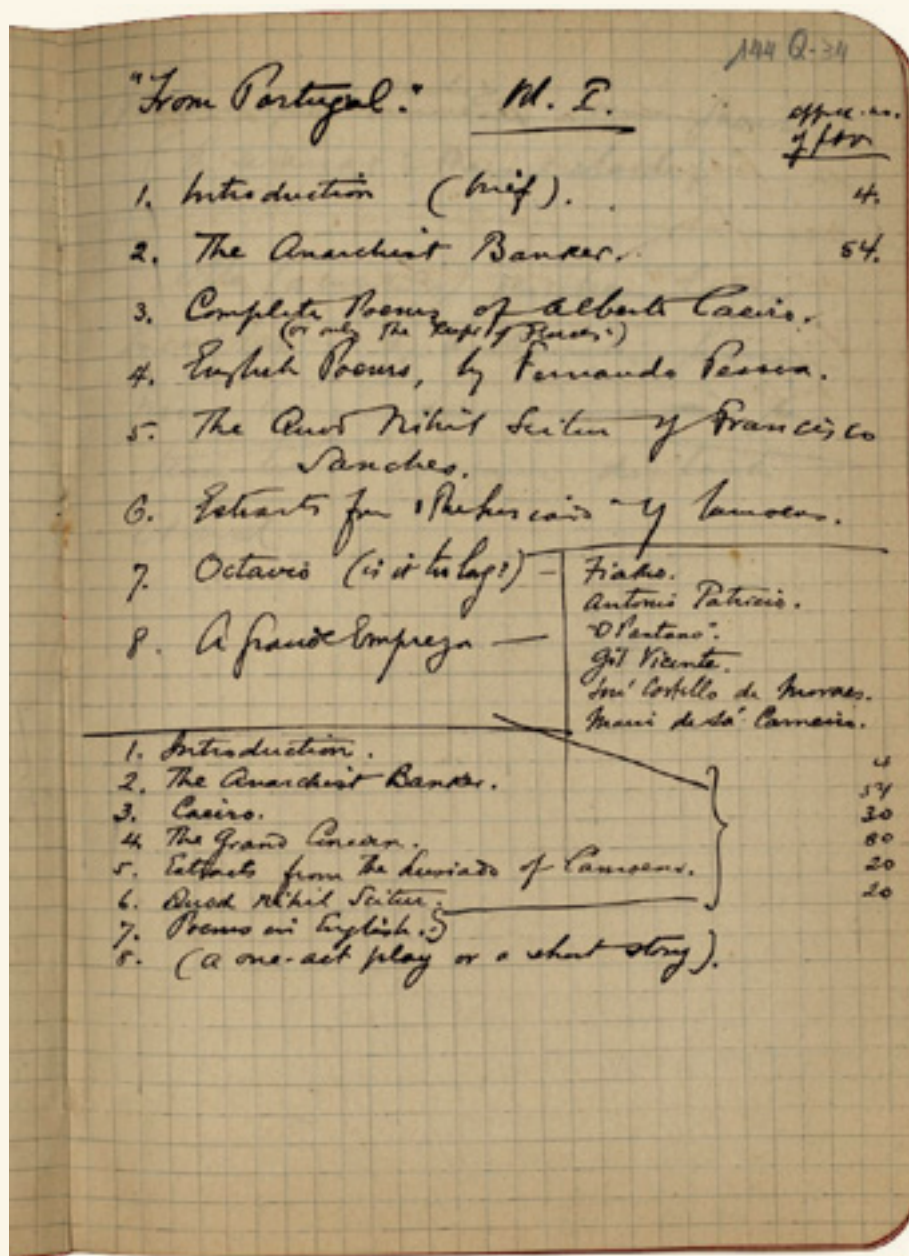 144 Q-34
"From Portugal." No. I.
of ppr.
1. Introduction (brief). 4.
2. The Anarchist Banker. 54.
3. Complete Poems of Alberto Caeiro.
(or only the Keeper of Flocks?)
4. English Poems, by Fernando Pessoa.
5. The Quod Nihil Scitur of Francisco
Sanches.
6. Extracts from of Camoens.
7. Octavio (is it too long?) —
8. A Grande Empreza —
Fialho.
Antonio Patricio.
"O Pantano".
Gil Vicente.
José Costello de Moraes.
Mario de Sá-Carneiro.
1. Introduction. 4
2. The Anarchist Banker. 54
3. Caeiro. 30
4. The Grand 80
5. Extracts from the Lusiads of Camoens. 20
6. Quod Nihil Scitur. 20
7. Poems in English.
8. (a one-act play or a short story).